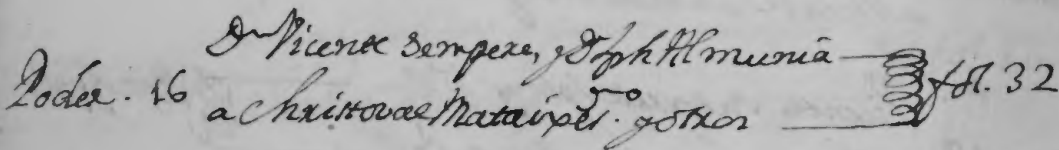 Poder. 16 Dn Vicente Sempere, y Dn Jph Almunia fol. 32
a Christoval Mataix pror. y otros